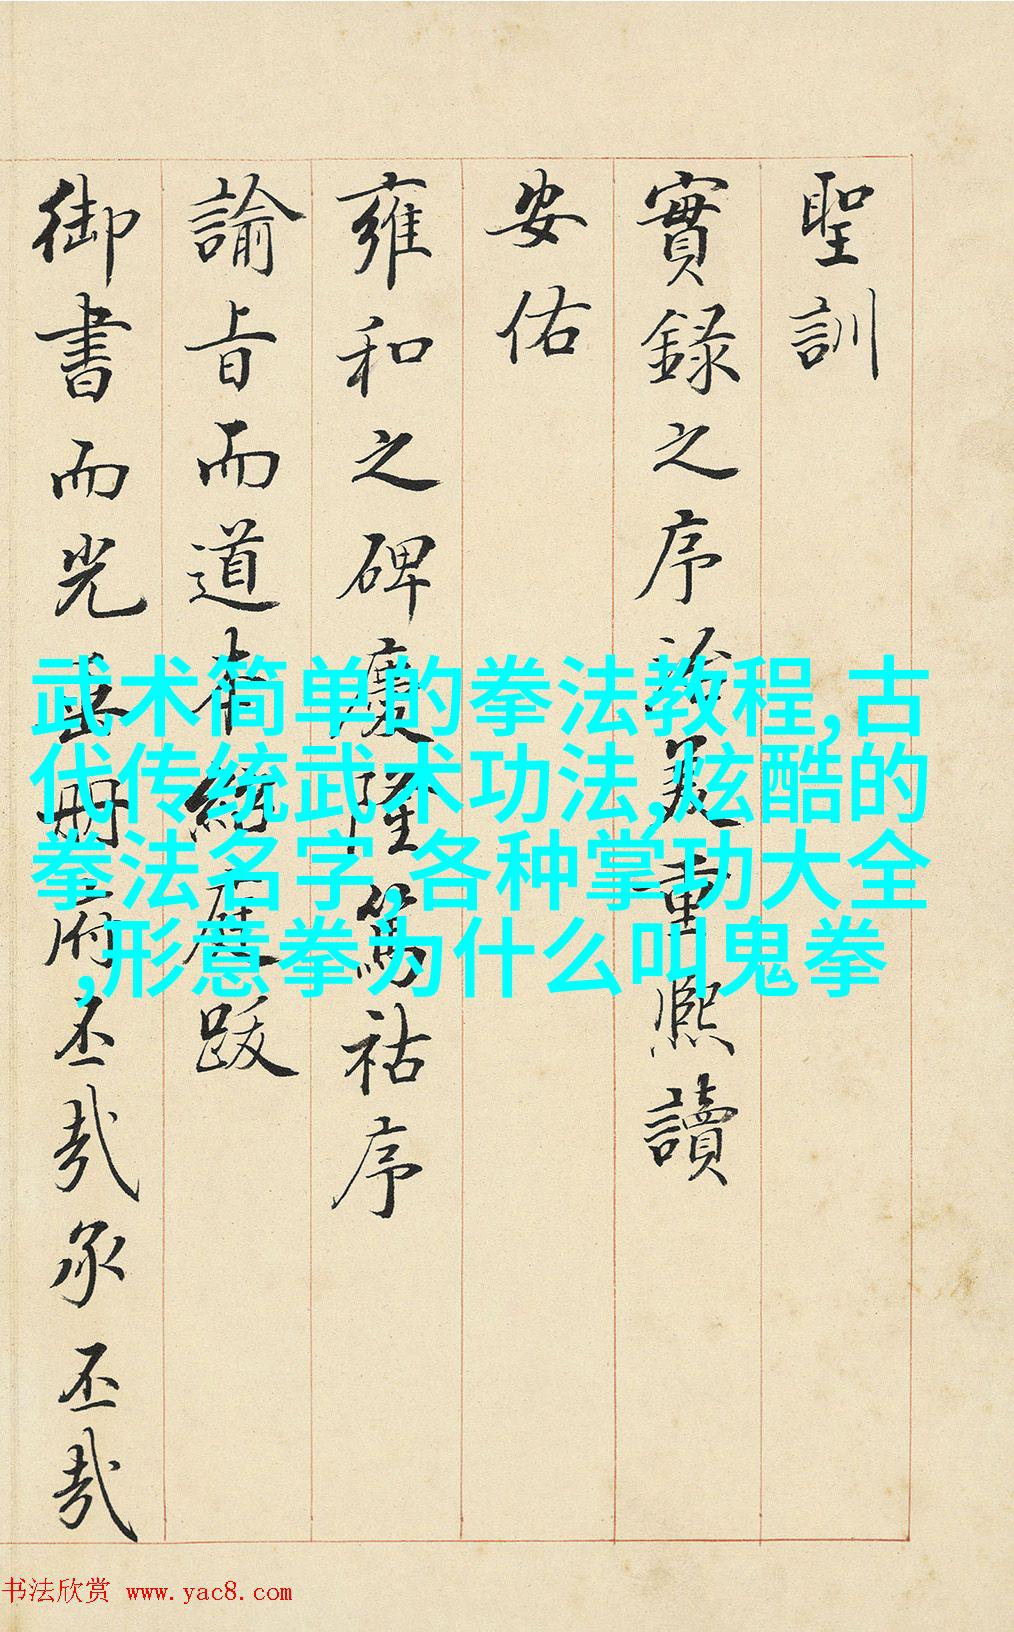 聖訓
實録之序詒美重熙讀
安佑
雍和之碑慶隆篤祜序
諭旨而道存紬展跋
御書而光垂冊府丕哉承丕哉
武术简单的拳法教程,古
代传统武术功法,炫酷的
拳法名字,各种掌功大全
,形意拳为什么叫鬼拳
书法欣赏 www.yac8.com